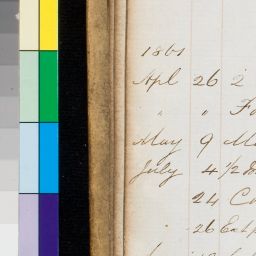 1861
Apl 26 2
" " Fo
May 9 Ma
July 4 1/2 D
24 Co
26 Exp